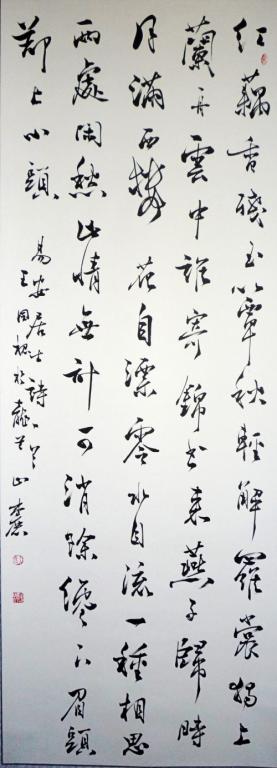 紅藕香殘玉簟秋輕解羅裳獨上
蘭舟雲中誰寄錦書來燕子歸時
月滿西樓花自漂零水自流一種相思
兩處閑愁此情無計可消除纔下眉頭
卻上心頭
易安居士詩一首
王國於龍首山麓